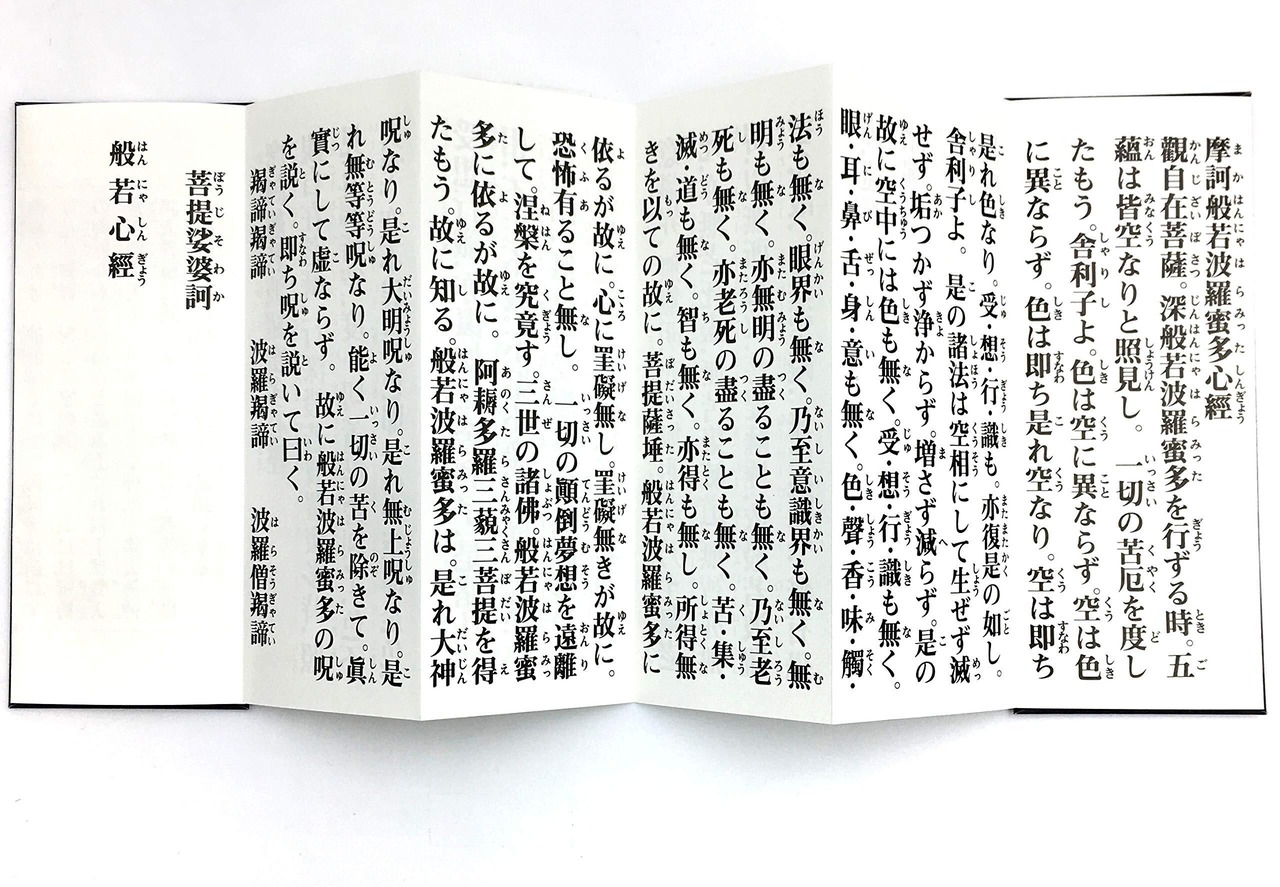 摩訶般若波羅蜜多心經
觀自在菩薩。深般若波羅蜜多を行ずる時。五
蘊は皆空なりと照見し。一切の苦厄を度し
たもう。舎利子よ。色は空に異ならず。空は色
に異ならず。色は即ち是れ空なり。空は即ち
是れ色なり。受・想・行・識も。亦復是の如し。
舎利子よ。是の諸法は空相にして生ぜず滅
せず。垢つかず浄からず。増さず減らず。是の
故に空中には色も無く。受・想・行・識も無く。
眼・耳・鼻・舌・身・意も無く。色・聲・香・味・觸・
法も無く。眼界も無く。乃至意識界も無く。無
明も無く。亦無明の盡ることも無く。乃至老
死も無く。亦老死の盡ることも無く。苦・集・
滅・道も無く。智も無く。亦得も無し。所得無
きを以ての故に。菩提薩埵。般若波羅蜜多に
依るが故に。心に罣礙無し。罣礙無きが故に。
恐怖有ること無し。一切の顛倒夢想を遠離
して。涅槃を究竟す。三世の諸佛。般若波羅蜜
多に依るが故に。阿耨多羅三藐三菩提を得
たもう。故に知る。般若波羅蜜多は。是れ大神
呪なり。是れ大明呪なり。是れ無上呪なり。是
れ無等等呪なり。能く一切の苦を除きて。眞
實にして虚ならず。故に般若波羅蜜多の呪
を説く。即ち呪を説いて曰く。
羯諦羯諦　波羅羯諦　波羅僧羯諦
菩提娑婆訶
般若心經